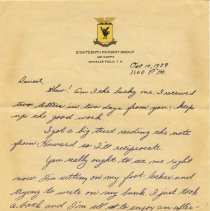 EIGHTEENTH PURSUIT GROUP
AIR CORPS
WHEELER FIELD, T.H.
Oct. 15, 1939
1:00 P.M.
Dearest,
Whew! Am I the lucky one I received
two letters in two days from you; keep
up the good work.
I got a big treat reading the note
from Howard so I'll reciprocate.
You really ought to see me right
now I'm sitting on my foot locker and
trying to write on my bunk I just took
a bath and I'm all set to enjoy an after-